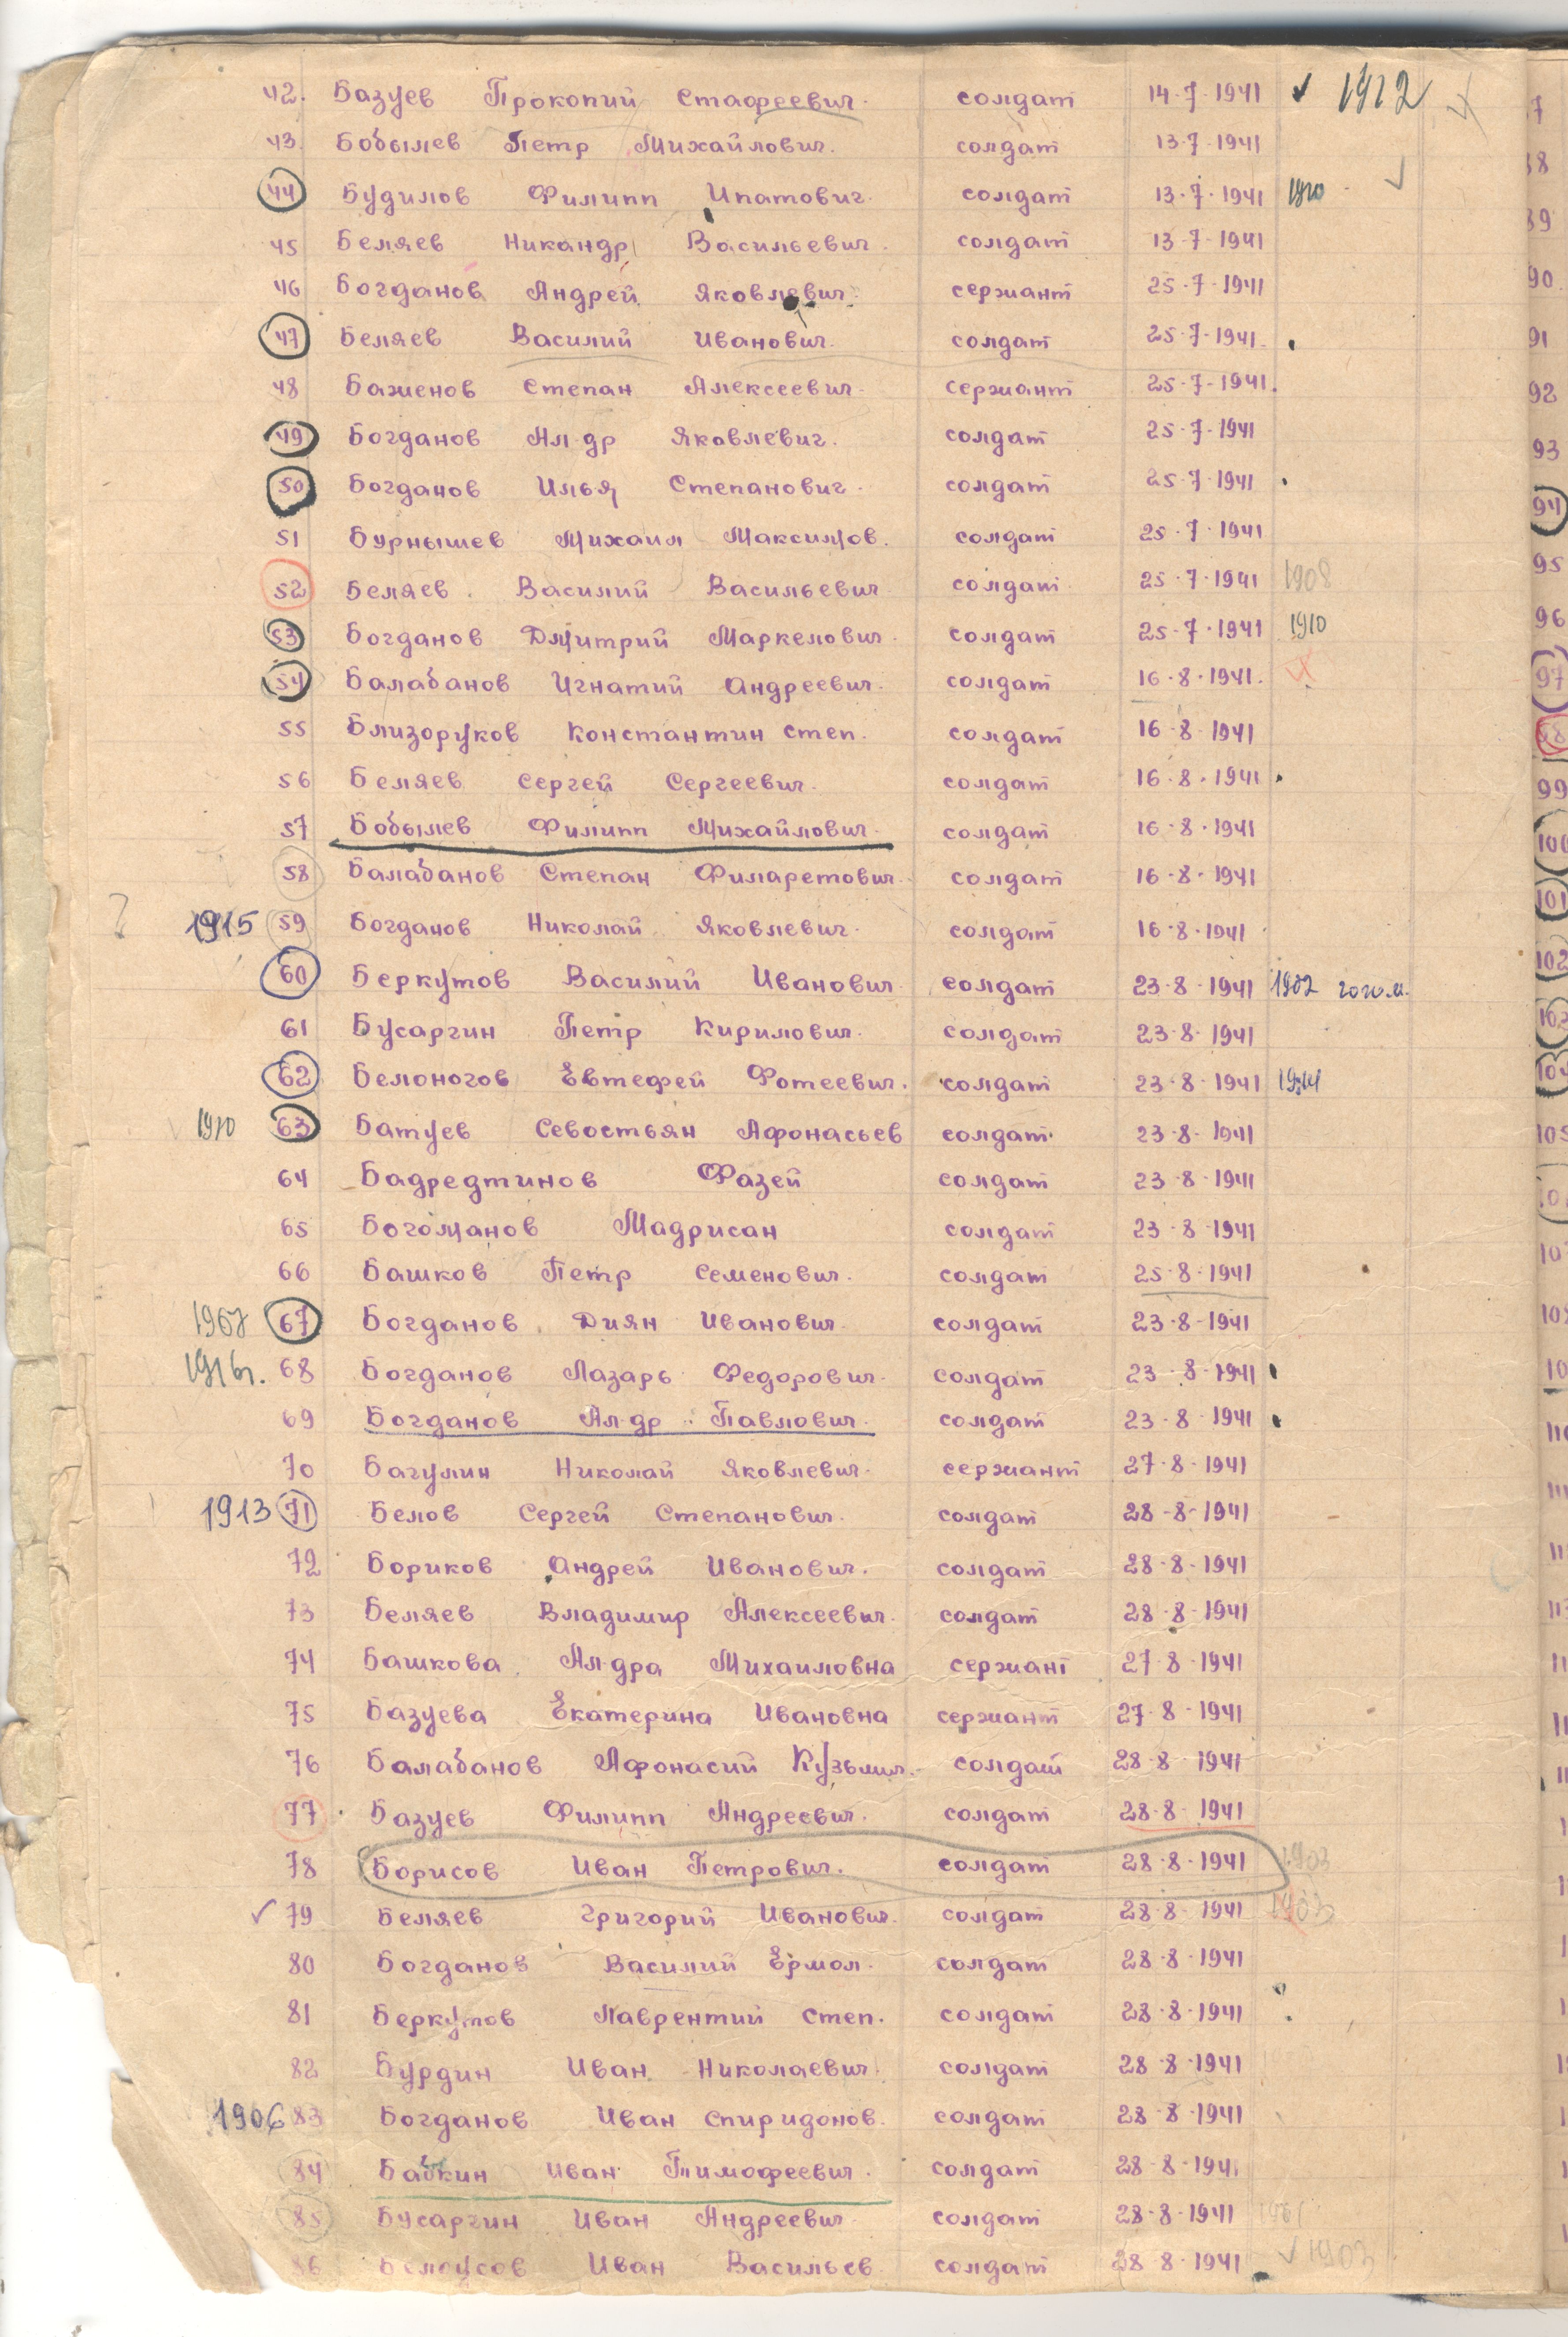 42. Базуев Прокопий Стафеевич. солдат 14-7-1941 1912
43. Бобылев Петр Михайлович. солдат 13-7-1941
44 Будилов Филипп Ипатович. солдат 13-7-1941 1910
45 Беляев Никандр Васильевич. солдат 13-7-1941
46 Богданов Андрей Яковлевич. сержант 25-7-1941
47 Беляев Василий Иванович. солдат 25-7-1941.
48 Баженов Степан Алексеевич. сержант 25-7-1941.
49 Богданов Ал-др Яковлевич. солдат 25-7-1941
50 Богданов Илья Степанович. солдат 25-7-1941
51 Бурнышев Михаил Максимов. солдат 25-7-1941
52 Беляев Василий Васильевич солдат 25-7-1941 1908
53 Богданов Дмитрий Маркелович. солдат 25-7-1941 1910
54 Балабанов Игнатий Андреевич. солдат 16-8-1941.
55 Близоруков Константин Степ. солдат 16-8-1941
56 Беляев Сергей Сергеевич. солдат 16-8-1941
57 Бобылев Филипп Михайлович. солдат 16-8-1941
58 Балабанов Степан Филаретович. солдат 16-8-1941
? 1915 59 Богданов Николай Яковлевич. солдат 16-8-1941
60 Беркутов Василий Иванович солдат 23-8-1941 1902
61 Бусаргин Петр Кирилович. солдат 23-8-1941
62 Белоногов Евтефей Фотеевич. солдат 23-8-1941
1910 63 Батуев Севостьян Афонасьев солдат 23-8-1941
64 Бадредтинов Фазей солдат 23-8-1941
65 Богоманов Мадрисан солдат 23-8-1941
66 Башков Петр Семенович. солдат 25-8-1941
67 Богданов Диян Иванович. солдат 23-8-1941
1916г. 68 Богданов Лазарь Федорович. солдат 23-8-1941
69 Богданов Ал-др Павлович. солдат 23-8-1941
70 Багулин Николай Яковлевич. сержант 27-8-1941
1913 71 Белов Сергей Степанович. солдат 28-8-1941
72 Бориков Андрей Иванович. солдат 28-8-1941
73 Беляев Владимир Алексеевич. солдат 28-8-1941
74 Башкова Ал-дра Михаиловна сержант 27-8-1941
75 Базуева Екатерина Ивановна сержант 27-8-1941
76 Балабанов Афонасий Кузьмич. солдат 28-8-1941
77 Базуев Филипп Андреевич. солдат 28-8-1941
78 Борисов Иван Петрович. солдат 28-8-1941 1903
79 Беляев Григорий Иванович. солдат 28-8-1941 1903
80 Богданов Василий Ермол. солдат 28-8-1941
81 Беркутов Лаврентий Степ. солдат 28-8-1941
82 Бурдин Иван Николаевич. солдат 28-8-1941
1906 83 Богданов Иван Спиридонов. солдат 28-8-1941
84 Бабкин Иван Тимофеевич. солдат 28-8-1941
85 Бусаргин Иван Андреевич солдат 28-8-1941
86 Белоусов Иван Васильев солдат 28-8-1941 1903
90
91
92
93
94
95
96
97
99
101
102